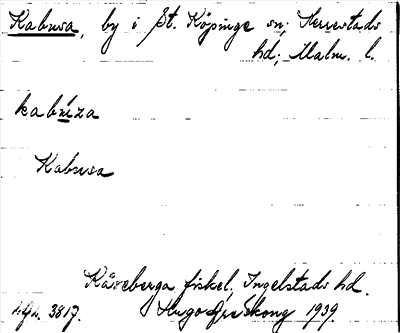 Kabusa, by i St. Köpinge sn; Herrestads
hd; Malm. l.
kabúza
Kabusa
Kåseberga fiskel, Ingelstads hd.
3817. Hugo Areskoug 1939.